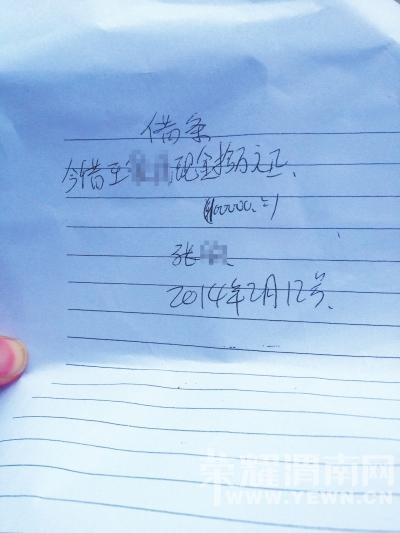 借条
今借至 现金拾万元正、
(100000.=)
张
2014年2月12号、
荣耀渭南网
WWW.YEWN.CN